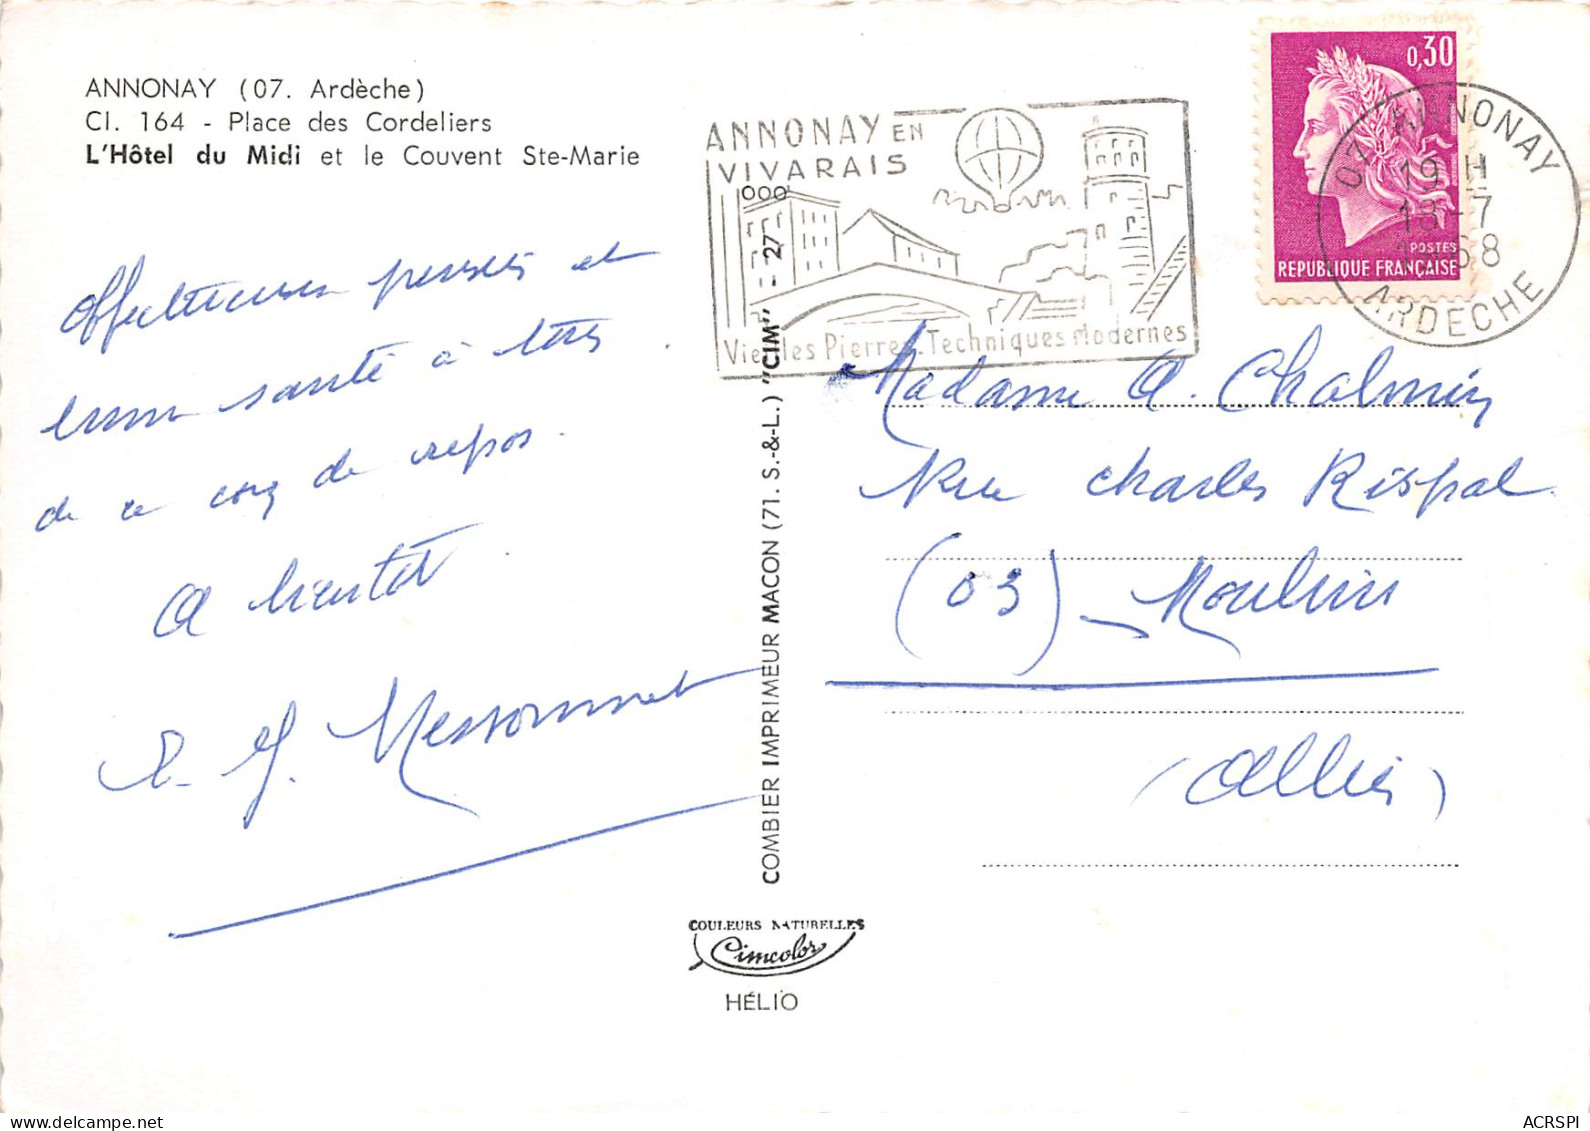 ANNONAY (07. Ardèche)
Cl. 164 - Place des Cordeliers
L'Hôtel du Midi et le Couvent Ste-Marie
Affectueuses pensées et
bonne santé à tous
de ce coin de repos.
A bientôt
Messonnet
ANNONAY EN
VIVARAIS
Vieilles Pierres - Techniques Modernes
0,30
POSTES
REPUBLIQUE FRANÇAISE
07 ANNONAY
19 H
18-7
1968
ARDECHE
Madame A. Chalmin
Rue Charles Rispal
(03) - Moulins
(Allier)
COMBIER IMPRIMEUR MACON (71. S.-&-L.) "CIM" - 27 000
COULEURS NATURELLES
Cimcolor
HÉLIO
ACRSPI